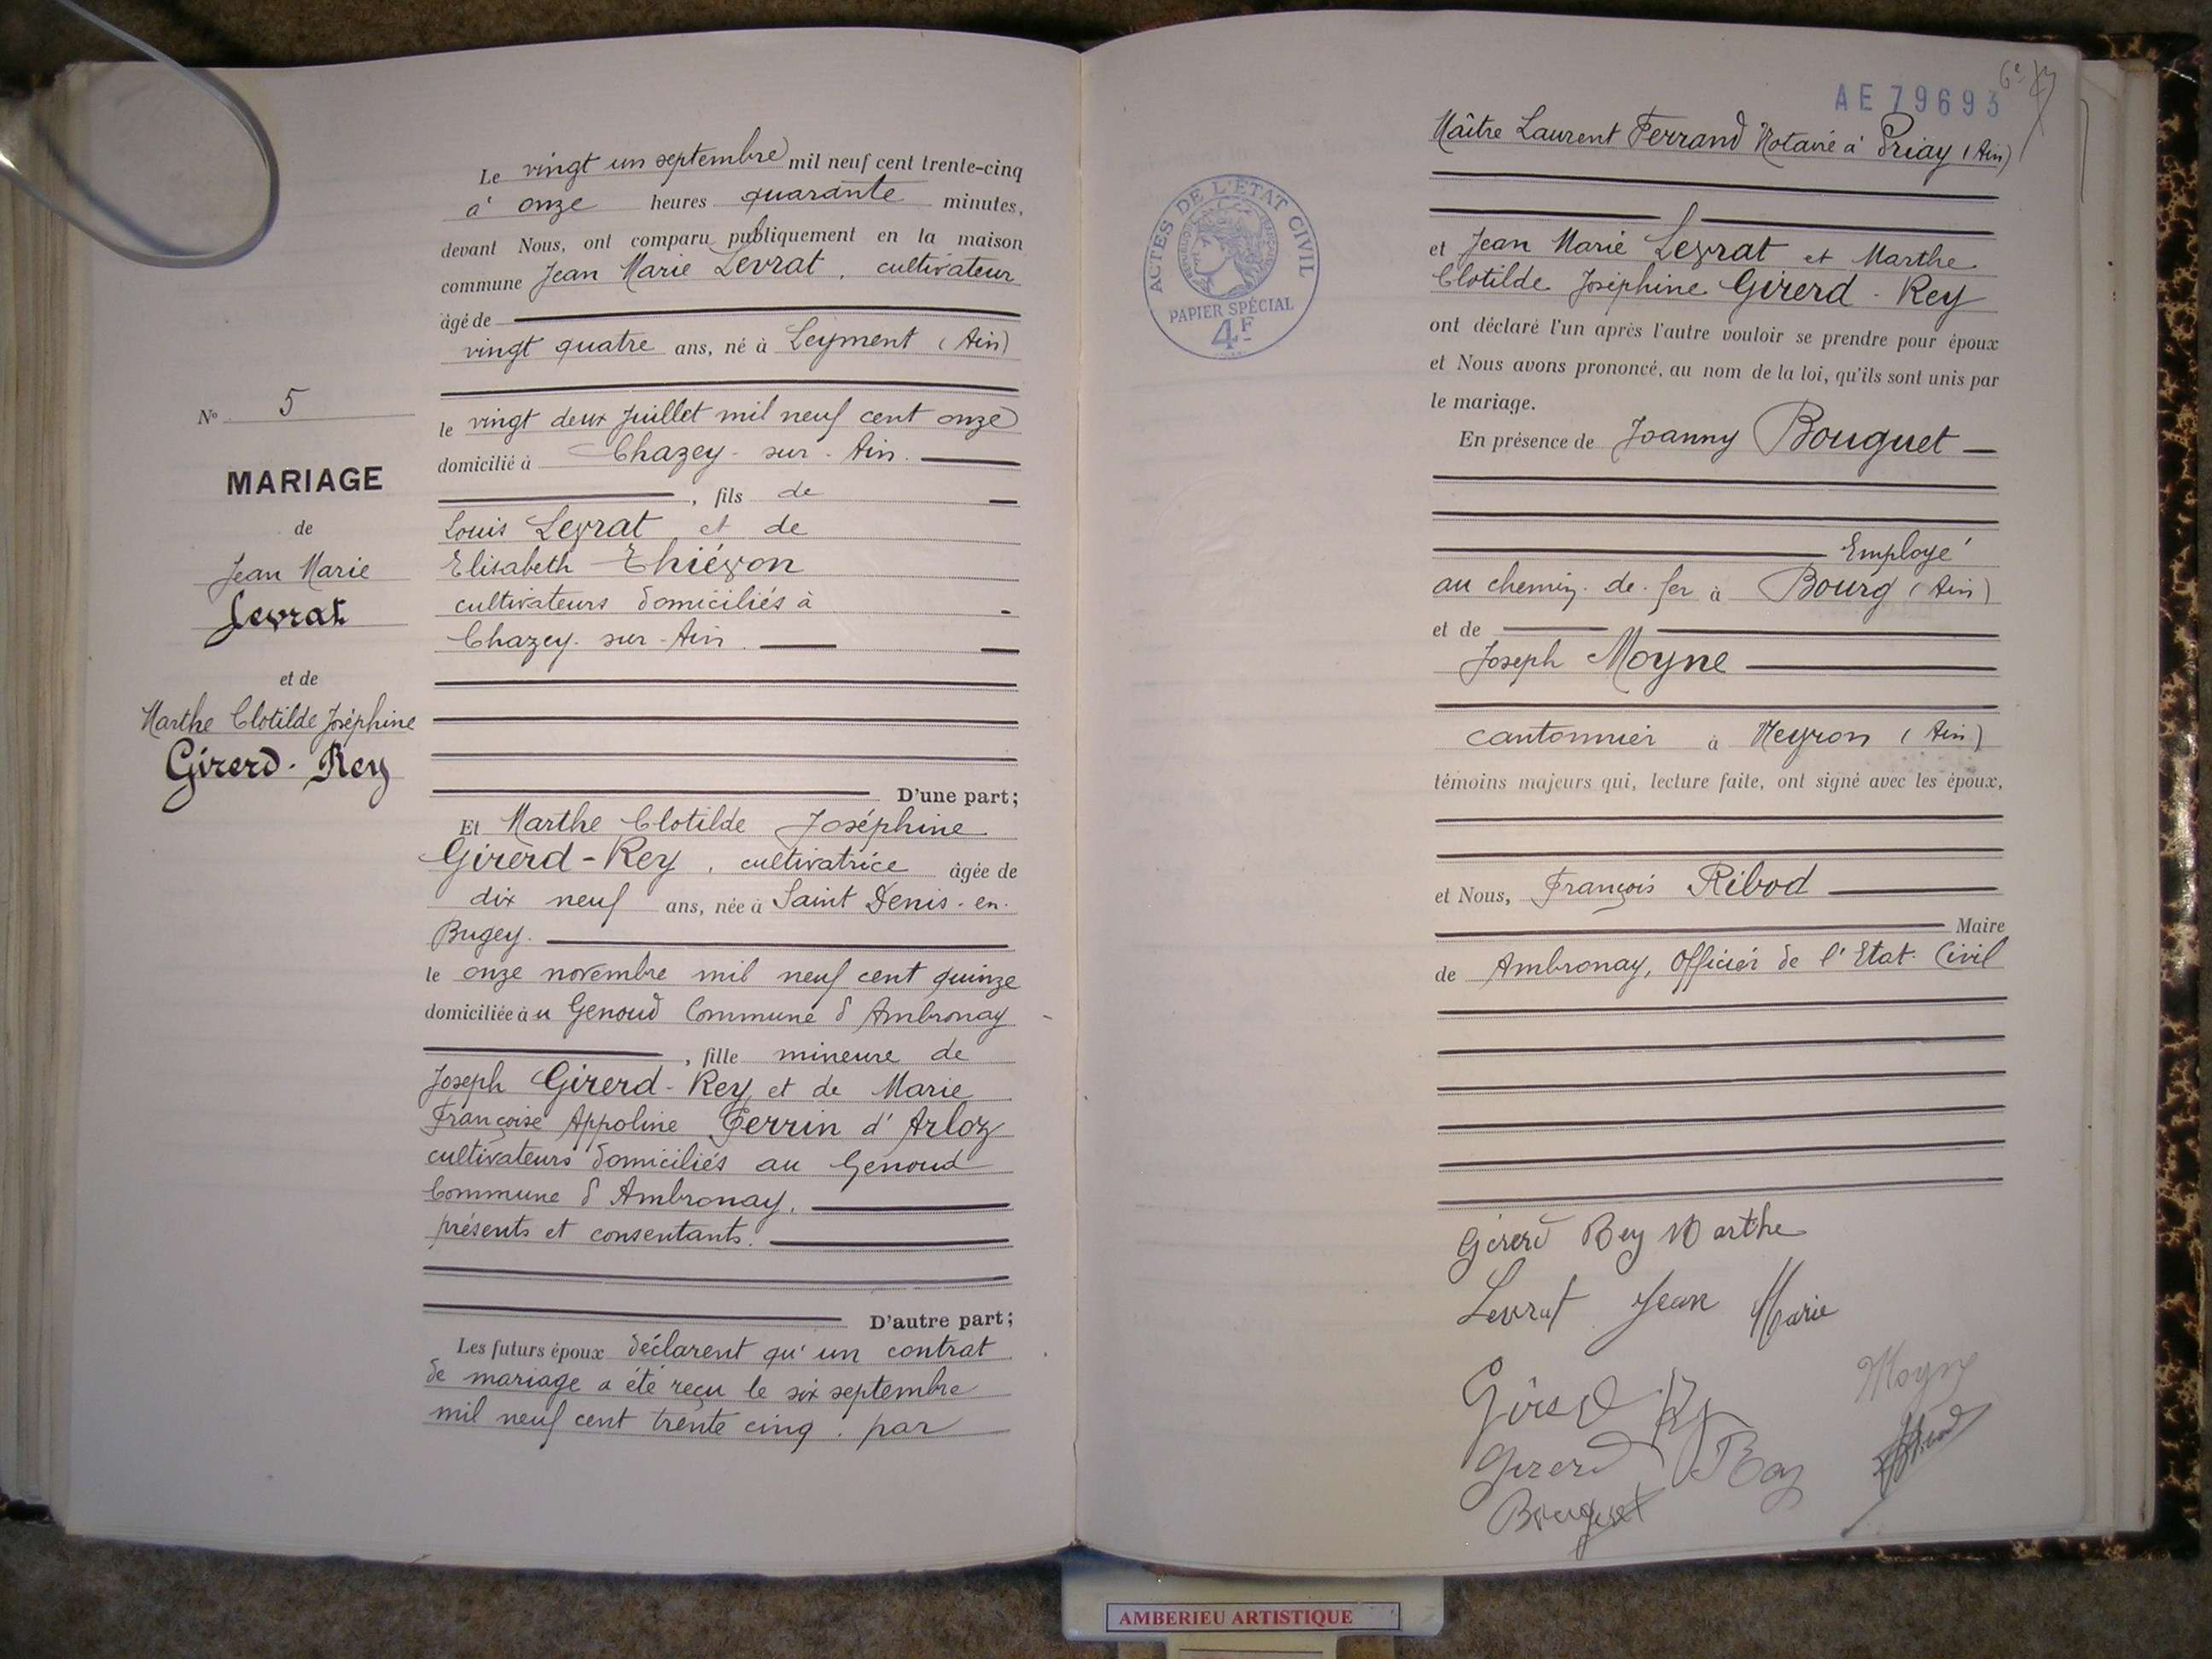 Le vingt un septembre mil neuf cent trente-cinq
à onze heures quarante minutes,
devant Nous, ont comparu publiquement en la maison
commune Jean Marie Levrat, cultivateur
âgé de
vingt quatre ans, né à Leyment (Ain)
le vingt deux Juillet mil neuf cent onze
domicilié à Chazey-sur-Ain.
, fils de
Louis Levrat et de
Elisabeth Thiévon
cultivateurs domiciliés à
Chazey-sur-Ain.
D'une part;
Et Marthe Clotilde Joséphine
Girerd-Rey, cultivatrice âgée de
dix neuf ans, née à Saint Denis-en-
Bugey.
le onze novembre mil neuf cent quinze
domiciliée à u Genoud Commune d'Ambronay
, fille mineure de
Joseph Girerd-Rey et de Marie
Françoise Appoline Perrin d'Arloz
cultivateurs domiciliés au Genoud
Commune d'Ambronay,
présents et consentants.
D'autre part;
Les futurs époux déclarent qu'un contrat
de mariage a été reçu le six septembre
mil neuf cent trente cinq, par
N° 5
MARIAGE
de
Jean Marie
Levrat
et de
Marthe Clotilde Joséphine
Girerd-Rey
AE 79693
Maître Laurent Ferrand Notaire à Priay (Ain)
et Jean Marie Levrat et Marthe
Clotilde Joséphine Girerd-Rey
ont déclaré l'un après l'autre vouloir se prendre pour époux
et Nous avons prononcé, au nom de la loi, qu'ils sont unis par
le mariage.
En présence de Joanny Bouguet
Employé
au chemin-de-fer à Bourg (Ain)
et de
Joseph Moyne
cantonnier à Neyron (Ain)
témoins majeurs qui, lecture faite, ont signé avec les époux,
et Nous, François Ribod
Maire
de Ambronay, Officier de l'Etat-Civil
Girerd Rey Marthe
Levrat Jean Marie
Girerd Ry
Moyne
Girerd Rey
Bouguet
ACTES DE L'ÉTAT CIVIL
RÉPUBLIQUE FRANÇAISE
PAPIER SPÉCIAL
4F
AMBERIEU ARTISTIQUE